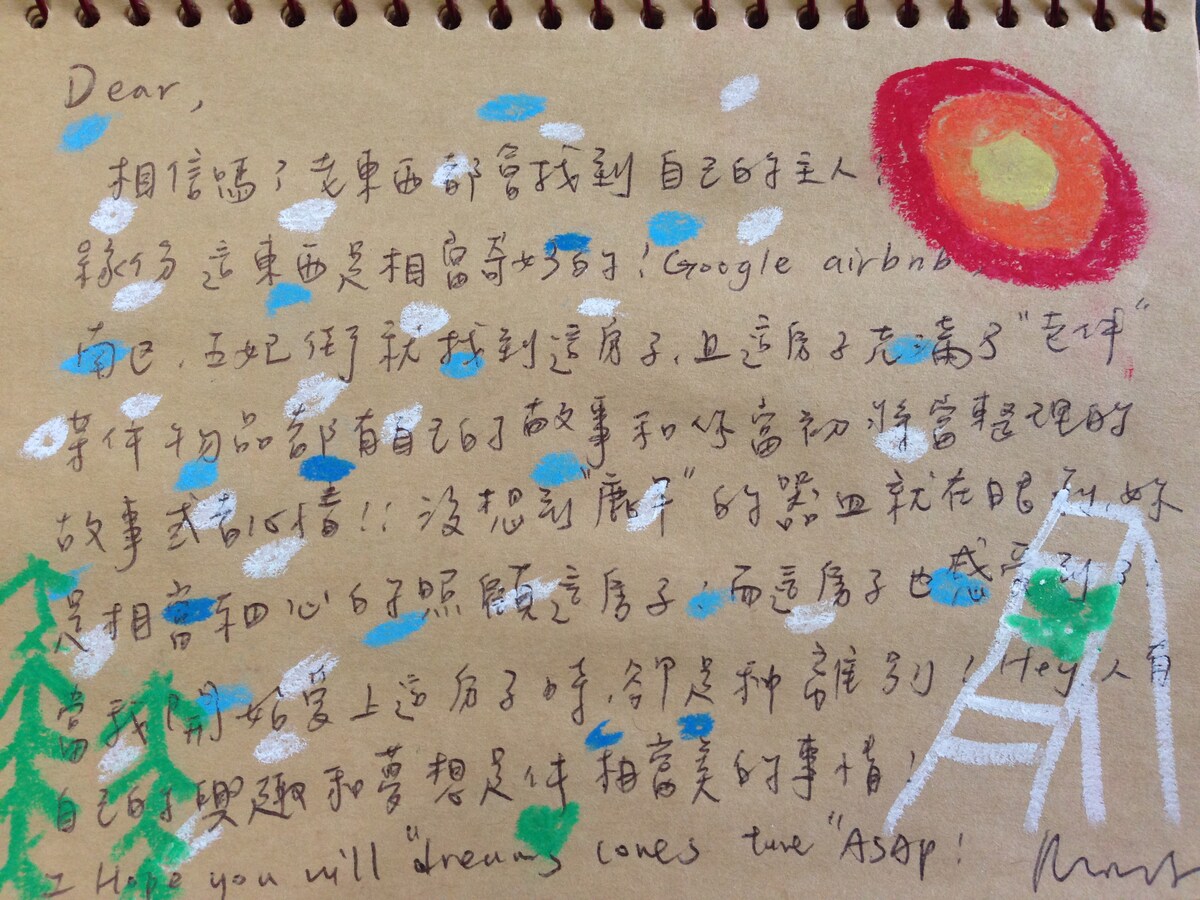 Dear,
相信嗎?老東西都會找到自己的主人!
緣份這東西是相當奇妙的!Google airbnb,
南區,五妃街就找到這房子,且這房子充滿了"老件"
某件物品都有自己的故事和你當初將當整理的
故事或者心情!!沒想到"鹿早"的器皿就在眼到,妳
是相當細心的照顧這房子!而這房子也感受到了
當我開始愛上這房子時,卻是種離別!Hey,人有
自己的興趣和夢想是件相當美的事情!
I Hope you will "dreams comes ture" ASAp!